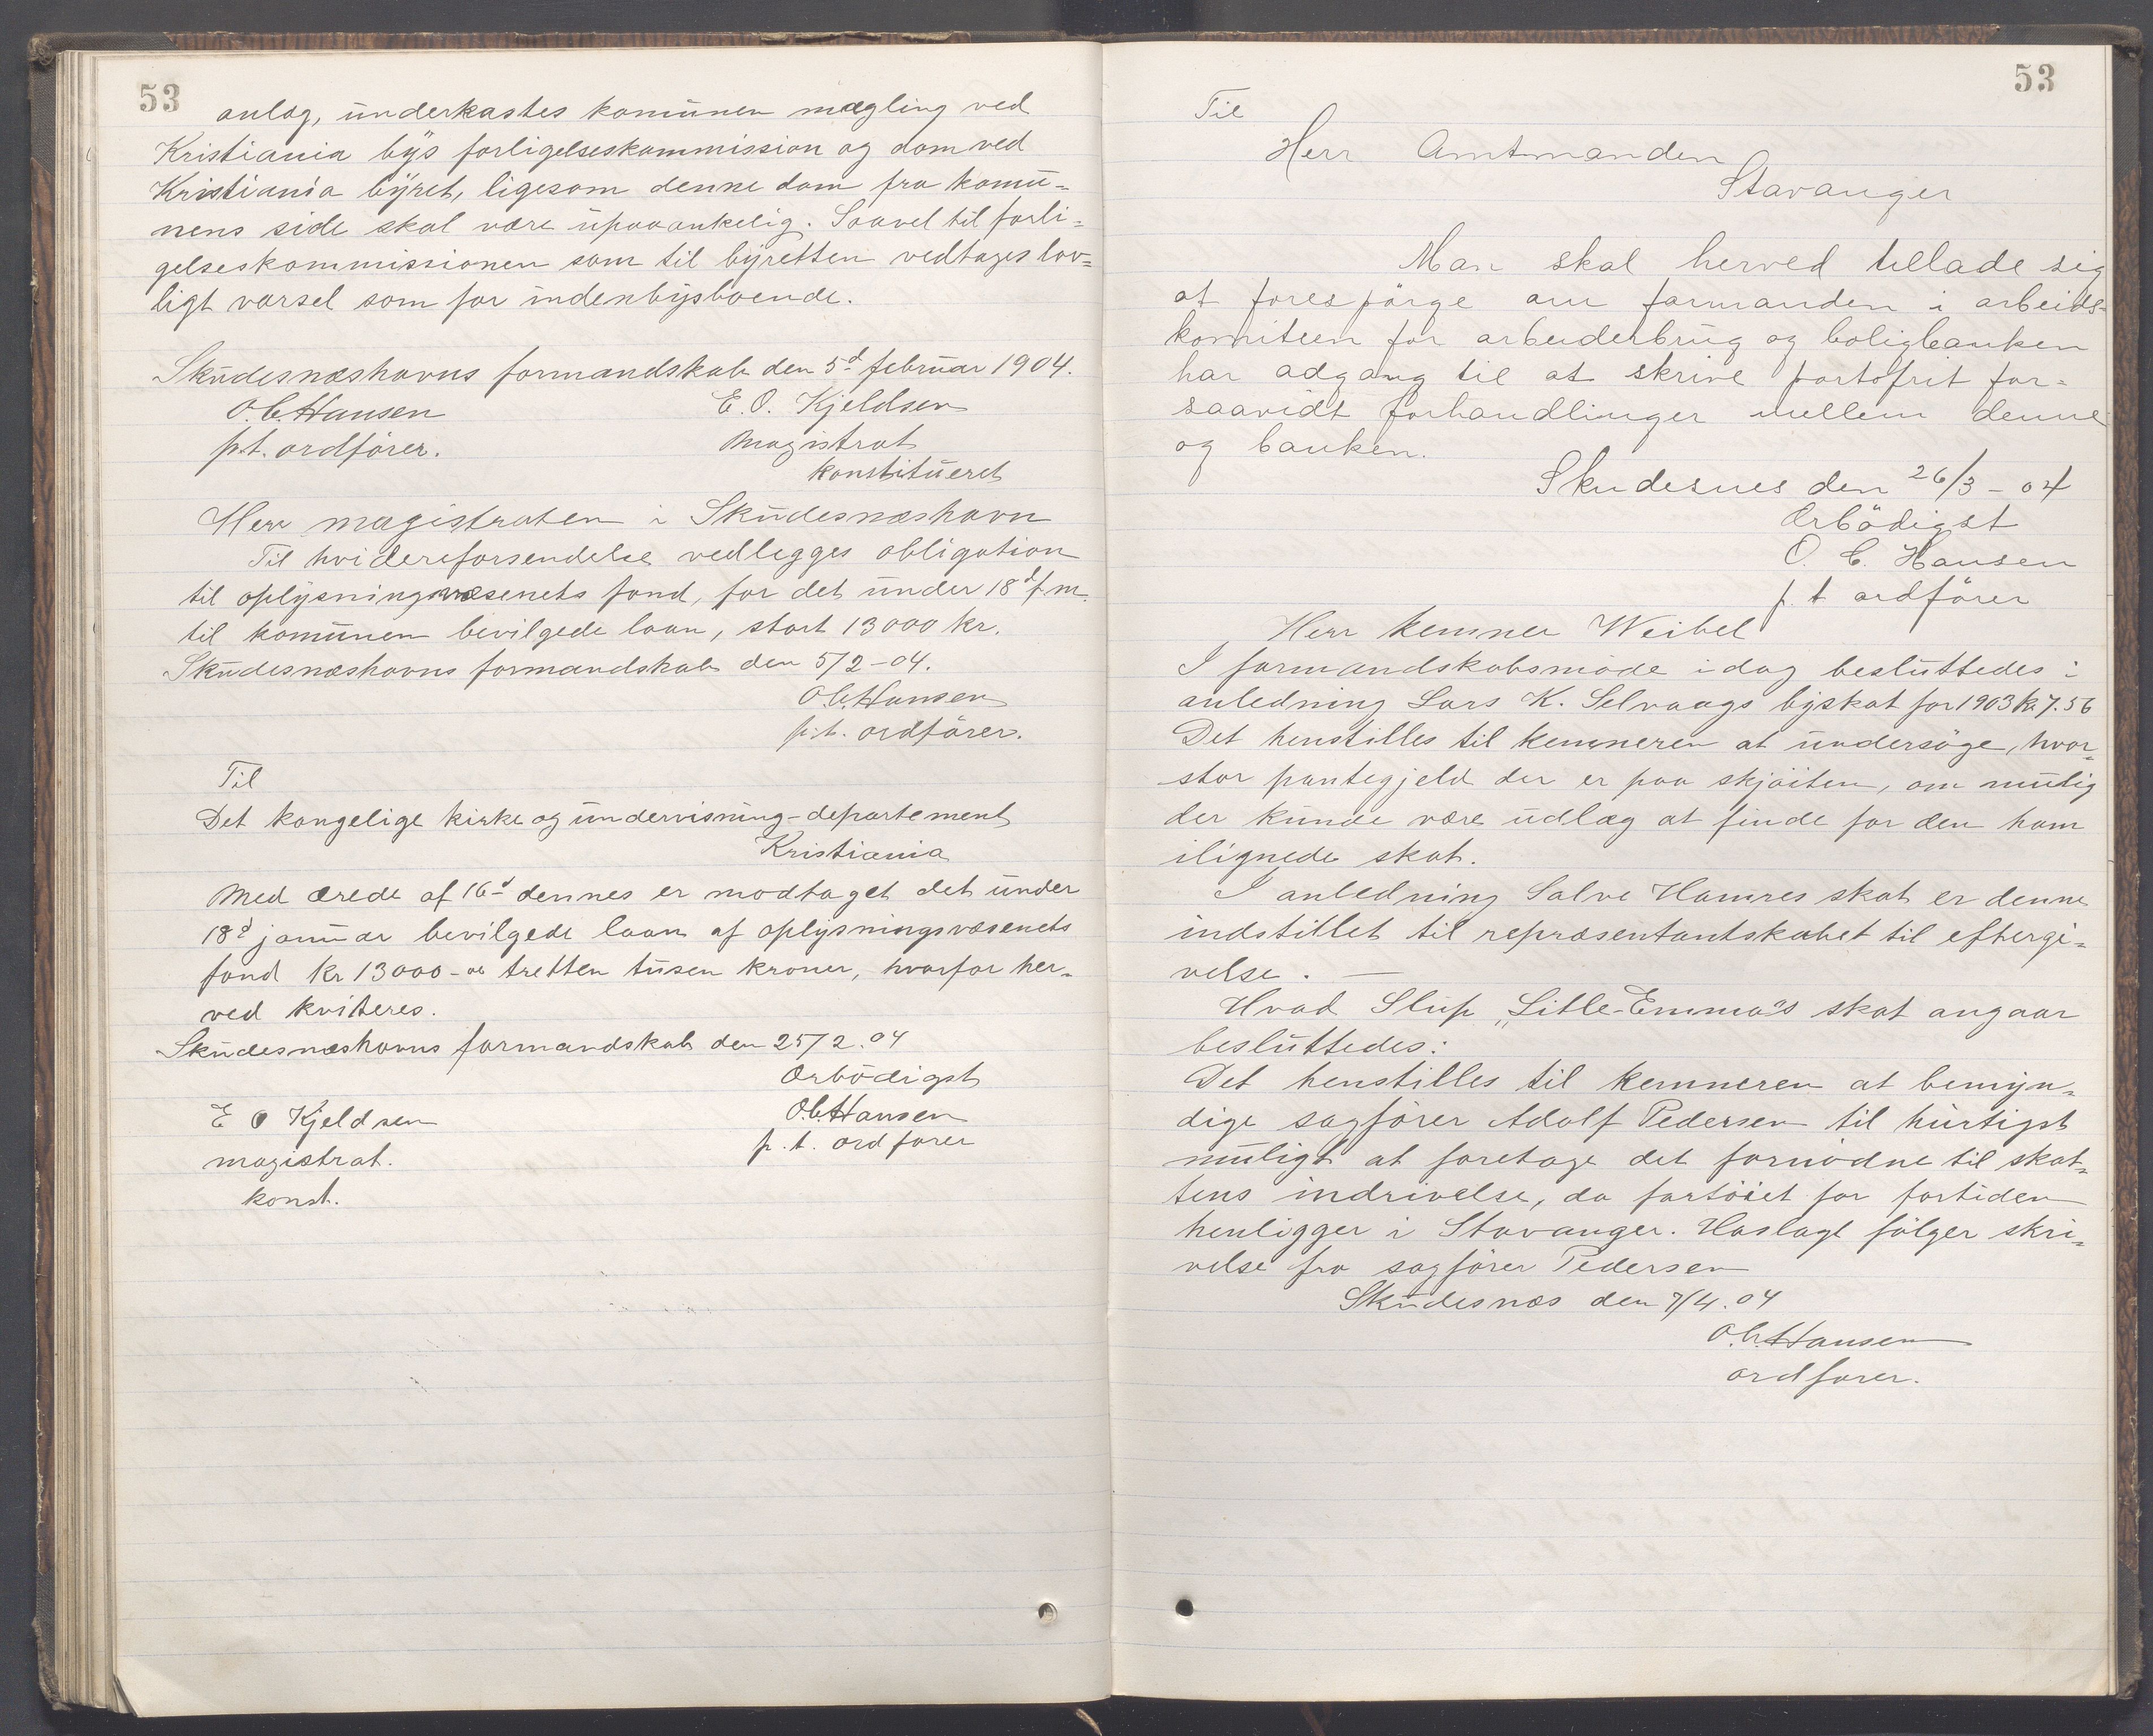 53
anlæg, underkastes komunen mægling ved
Kristiania bys forligelseskommission og dom ved
Kristiania byret, ligesom denne dom fra komu-
nens side skal være upaaankelig. Saavel til forli-
gelseskommissionen som til byretten vedtages lov-
ligt varsel som for indenbysboende.
Skudesnæshavns formandskab den 5d februar 1904.
O.C. Hansen E. O. Kjeldsen
p.t. ordfører. magistrat
konstitueret
Herr magistraten i Skudesnæshavn
Til hvidereforsendelse vedlegges obligation
til oplysningsvæsenets fond, for det under 18d f.m.
til komunen bevilgede laan, stort 13000 kr.
Skudesnæshavns formandskab den 5/2-04.
O.C. Hansen
p.t. ordfører.
Til
Det kongelige kirke og undervisning-departement
Kristiania
Med ærede af 16d dennes er modtaget det under
18d januar bevilgede laan af oplysningsvæsenets
fond kr 13000-er tretten tusen kroner, hvorfor her-
ved kviteres.
Skudesnæshavns formandskab den 25/2.04
Ærbødigst
E O Kjeldsen O.C. Hansen
magistrat. p.t. ordfører
konst.
53
Til
Herr Amtmanden
Stavanger
Man skal herved tillade sig
at forespørge om formanden i arbeids-
komiteen for arbeiderbrug og boligbanken
har adgang til at skrive portofrit for-
saavidt forhandlinger mellem denne
og banken.
Skudesnes den 26/3-04
Ærbødigst
O. C. Hansen
p. t ordfører
Herr kemner Weibel
I formandskabsmøde idag besluttedes i
anledning Lars K. Selvaags byskat for 1903 kr. 7.56
Det henstilles til kemneren at undersøge, hvor-
stor pantegjeld der er paa skjøiten, om mulig
der kunde være udlæg at finde for den ham
ilignede skat.
I anledning Salve Hamres skat er denne
indstillet til repræsentantskabet til eftergi-
velse. —
Hvad Slup „Litle-Emma"s skat angaar
besluttedes:
Det henstilles til kemneren at bemyn-
dige sagfører Adolf Pedersen til hurtigst
muligt at foretage det fornødne til skat-
tens indrivelse, da fartøiet for fortiden
henligger i Stavanger. Hoslagt følger skri-
velse fra sagfører Pedersen
Skudesnæs den 7/4.04
O.C. Hansen
ordfører.